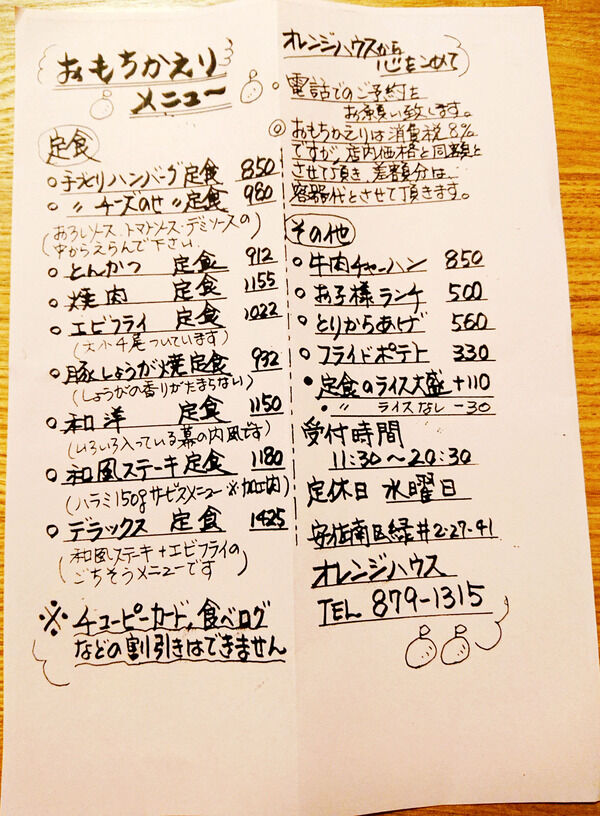 おもちかえり
メニュー
定食
○手ごねりハンバーグ定食 850
○〃チーズのせ〃定食 980
(おろしソース、トマトソース・デミソースの
中からえらんで下さい。
○とんかつ 定食 912
○焼肉 定食 1155
○エビフライ 定食 1022
(大小4尾ついています)
○豚しょうが焼定食 932
(しょうがの香りがたまらない)
○和洋 定食 1150
(いろいろ入っている幕の内風です)
○和風ステーキ定食 1180
(ハラミ150gサービスメニュー ※加工肉)
○デラックス 定食 1425
(和風ステーキ+エビフライの
ごちそうメニューです)
※チューピーカード、食べログ
などの割引きはできません
オレンジハウスから
心をこめて
電話でのご予約を
お願い致します。
◎おもちかえりは消費税8%
ですが、店内価格と同額と
させて頂き 差額分は、
容器代とさせて頂きます。
その他
○牛肉チャーハン 850
・お子様ランチ 500
・とりからあげ 560
・フライドポテト 330
●定食のライス大盛 +110
・〃 ライスなし -30
受付時間
11:30〜20:30
定休日 水曜日
安佐南区緑井2-27-41
オレンジハウス
TEL 879-1315